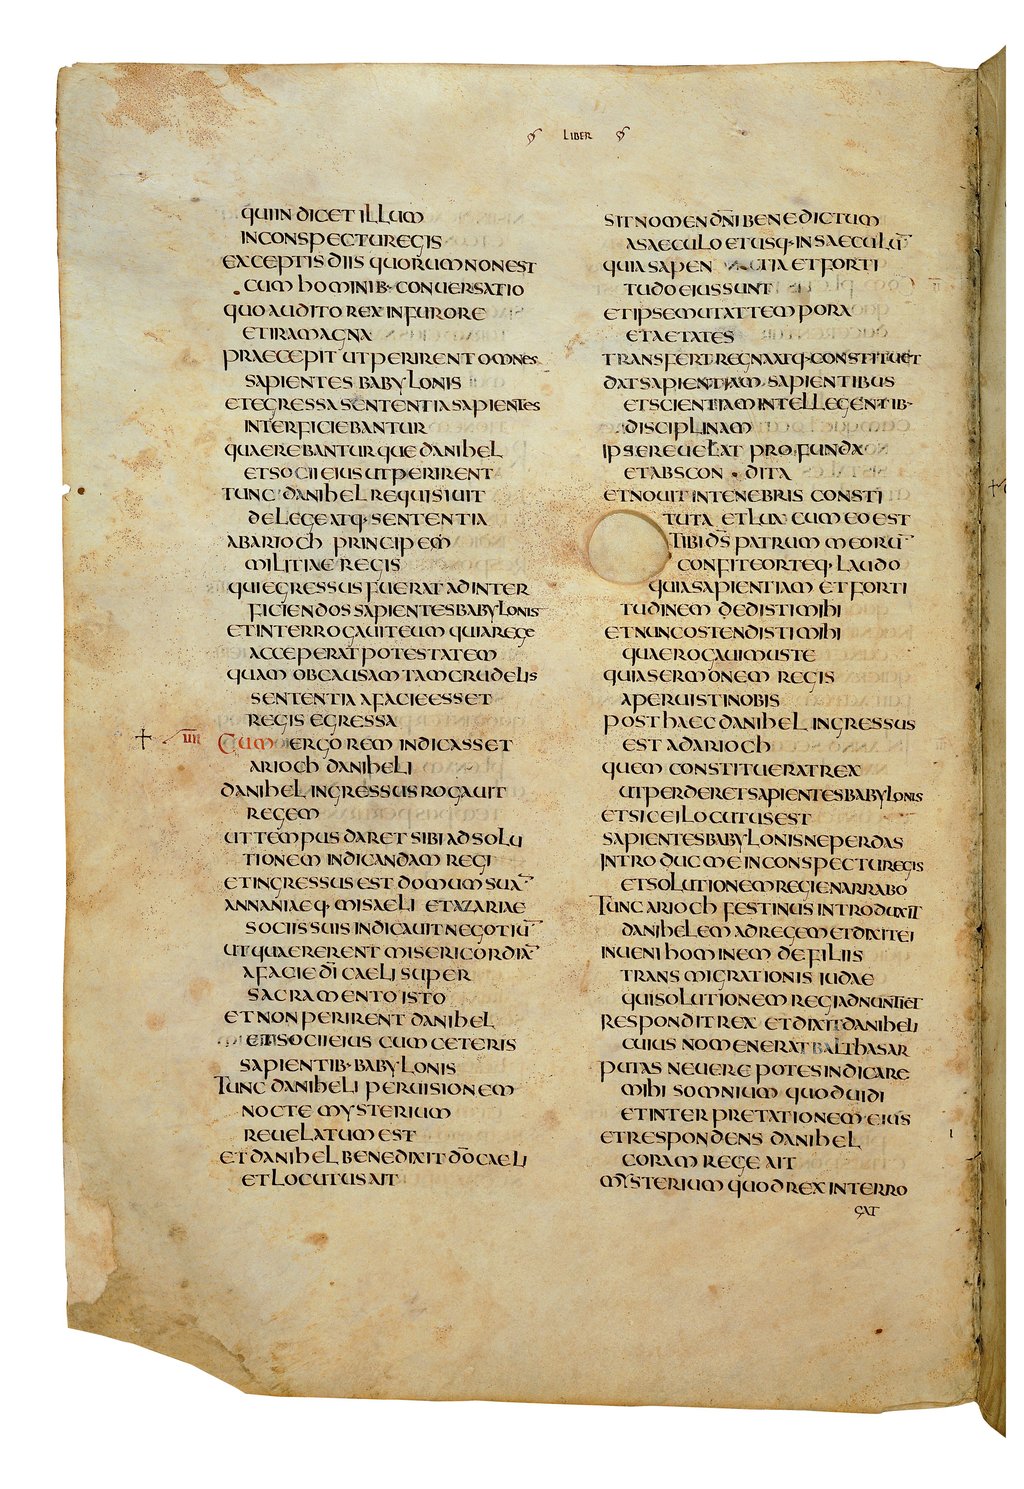 LIBER
QUI INDICET ILLUM
IN CONSPECTU REGIS
EXCEPTIS DIIS QUORUM NON EST
CUM HOMINIB· CONUERSATIO
QUO AUDITO REX IN FURORE
ET IRA MAGNA
PRAECEPIT UT PERIRENT OMNES
SAPIENTES BABYLONIS
ET EGRESSA SENTENTIA SAPIENTES
INTERFICIEBANTUR
QUAEREBANTURQUE DANIHEL
ET SOCII EIUS UT PERIRENT
TUNC DANIHEL REQUISIUIT
DE LEGE ATQ· SENTENTIA
AB ARIOCH PRINCIPEM
MILITIAE REGIS
QUI EGRESSUS FUERAT AD INTER
FICIENDOS SAPIENTES BABYLONIS
ET INTERROGAUIT EUM QUI A REGE
ACCEPERAT POTESTATEM
QUAM OB CAUSAM TAM CRUDELIS
SENTENTIA A FACIE ESSET
REGIS EGRESSA
IIII CUM ERGO REM INDICASSET
ARIOCH DANIHELI
DANIHEL INGRESSUS ROGAUIT
REGEM
UT TEMPUS DARET SIBI AD SOLU
TIONEM INDICANDAM REGI
ET INGRESSUS EST DOMUM SUA¯
ANNANIAEQ· MISAELI ET AZARIAE
SOCIIS SUIS INDICAUIT NEGOTIU¯
UT QUAERERENT MISERICORDIA¯
A FACIE D̅I CAELI SUPER
SACRAMENTO ISTO
ET NON PERIRENT DANIHEL
ET SOCII EIUS CUM CETERIS
SAPIENTIB· BABYLONIS
TUNC DANIHELI PER UISIONEM
NOCTE MYSTERIUM
REUELATUM EST
ET DANIHEL BENEDIXIT D̅O CAELI
ET LOCUTUS AIT
SIT NOMEN D̅N̅I BENEDICTUM
A SAECULO ET USQ· IN SAECULU¯
QUIA SAPIEN TIA ET FORTI
TUDO EIUS SUNT
ET IPSE MUTAT TEMPORA
ET AETATES
TRANSFERT REGNA ATQ· CONSTITUET
DAT SAPIENTIAM SAPIENTIBUS
ET SCIENTIAM INTELLEGENTIB·
DISCIPLINAM
IPSE REUELAT PROFUNDA
ET ABSCON DITA
ET NOUIT IN TENEBRIS CONSTI
TUTA ET LUX CUM EO EST
TIBI D̅S̅ PATRUM MEORU¯
CONFITEOR TEQ· LAUDO
QUIA SAPIENTIAM ET FORTI
TUDINEM DEDISTI MIHI
ET NUNC OSTENDISTI MIHI
QUAE ROGAUIMUS TE
QUIA SERMONEM REGIS
APERUISTI NOBIS
POST HAEC DANIHEL INGRESSUS
EST AD ARIOCH
QUEM CONSTITUERAT REX
UT PERDERET SAPIENTES BABYLONIS
ET SIC EI LOCUTUS EST
SAPIENTES BABYLONIS NE PERDAS
INTRODUC ME IN CONSPECTU REGIS
ET SOLUTIONEM REGI ENARRABO
TUNC ARIOCH FESTINUS INTRODUXIT
DANIHELEM AD REGEM ET DIXIT EI
INUENI HOMINEM DE FILIIS
TRANSMIGRATIONIS IUDAE
QUI SOLUTIONEM REGI ADNUNTIET
RESPONDIT REX ET DIXIT DANIHELI
CUIUS NOMEN ERAT BALTHASAR
PUTAS NE UERE POTES INDICARE
MIHI SOMNIUM QUOD UIDI
ET INTERPRETATIONEM EIUS
ET RESPONDENS DANIHEL
CORAM REGE AIT
MYSTERIUM QUOD REX INTERRO
GAT